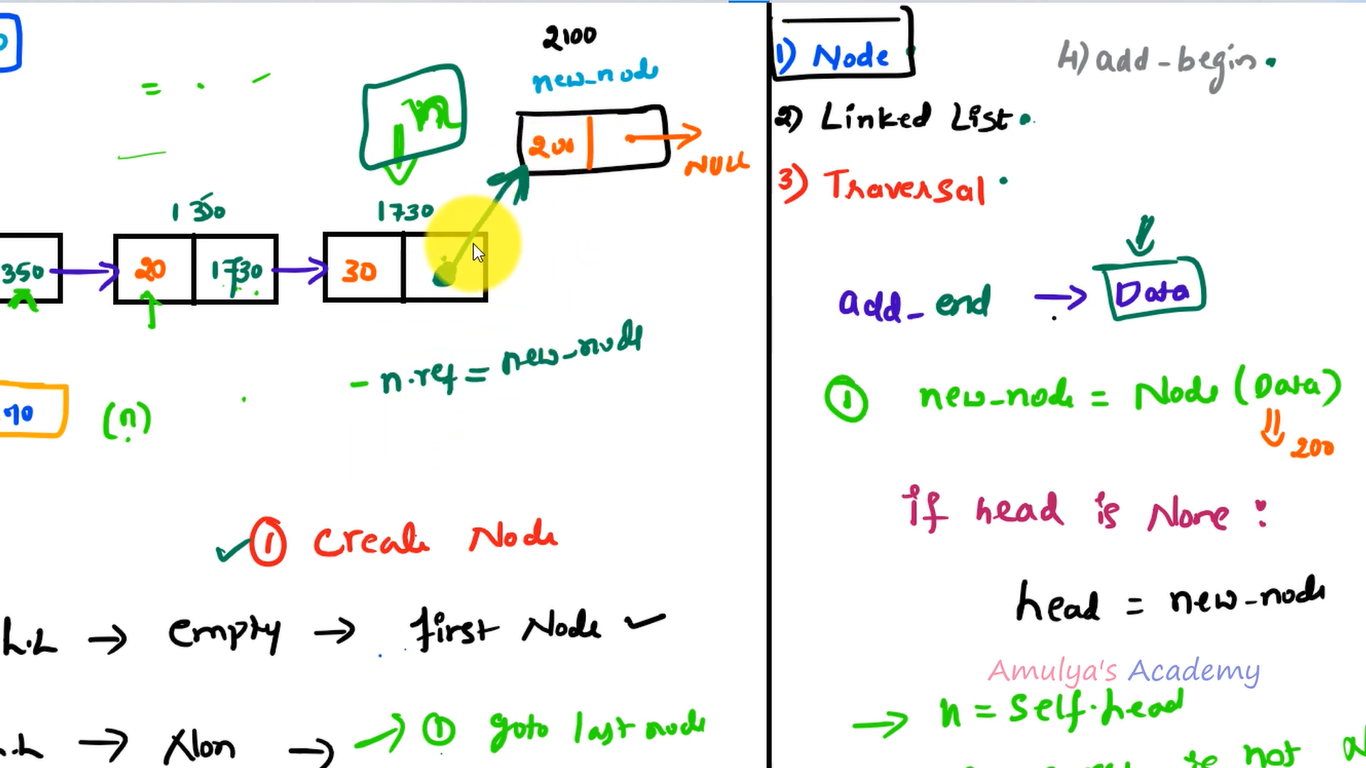 2100
new_node
n
200
NULL
1350
1730
350
20
1730
30
- n.ref = new_node
(n)
① Create Node
L.L → empty → first Node
L.L → Non → ① goto last node
1) Node
4) add_begin
2) Linked List
3) Traversal
add_end → Data
① new_node = Node (Data)
200
if head is None :
head = new_node
Amulya's Academy
→ n = self.head
is not